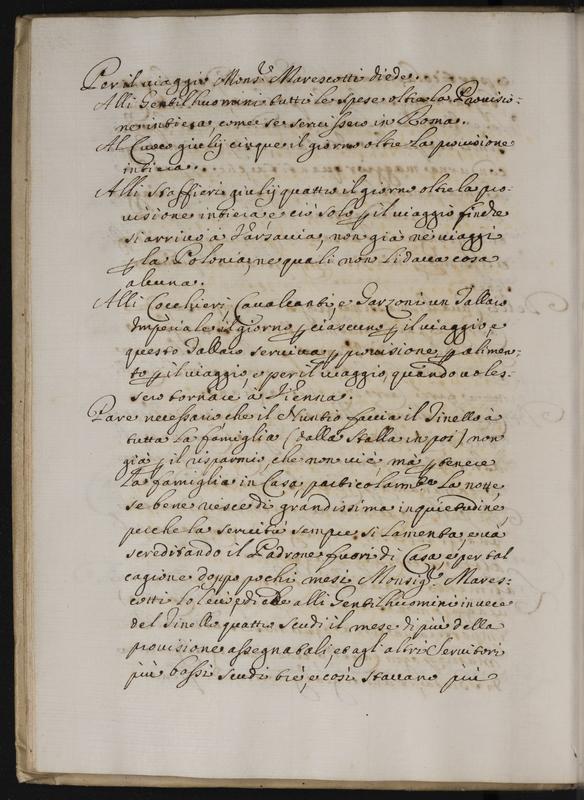 Per il viaggio Mons.r Marescotti diede.
Alli Gentilhuomini tutte le spese oltre la Provisio:
ne intiera come se servissero in Roma.
Al Cuoco giulij cinque il giorno oltre la provisione
intiera.
Alli Staffieri giulij quattro il giorno oltre la pro:
visione intiera e ciò solo p il viaggio finche
si arrivò à Varsavia, non già ne viaggi
p la Polonia, ne quali non li dava cosa
alcuna.
Alli Cocchieri, Cavalcanti, e Garzoni un Tallaro
Imperiale il giorno p ciascuno p il viaggio, e
questo Tallaro serviva p provisione p alimen:
to p il viaggio, e per il viaggio, quando voles:
sero tornare à Vienna.
Pare necessario che il Nuntio faccia il Tinello à
tutta la famiglia (dalla stalla in poi) non
già p il risparmio che non vi è, mà p tenere
la famiglia in Casa, particolarm.te la notte
se bene riesce di grandissima inquietudine
perche la servitù sempre si lamenta, e và
screditando il Padrone fuori di Casa, e per tal
cagione doppo pochi mesi Monsig.r Mares:
cotti lo levò, e diede alli Gentilhuomini invece
del Tinello quattro scudi il mese di più della
provisione assegnatali, et agli altri Servitori
più bassi scudi trè, e così stavano più